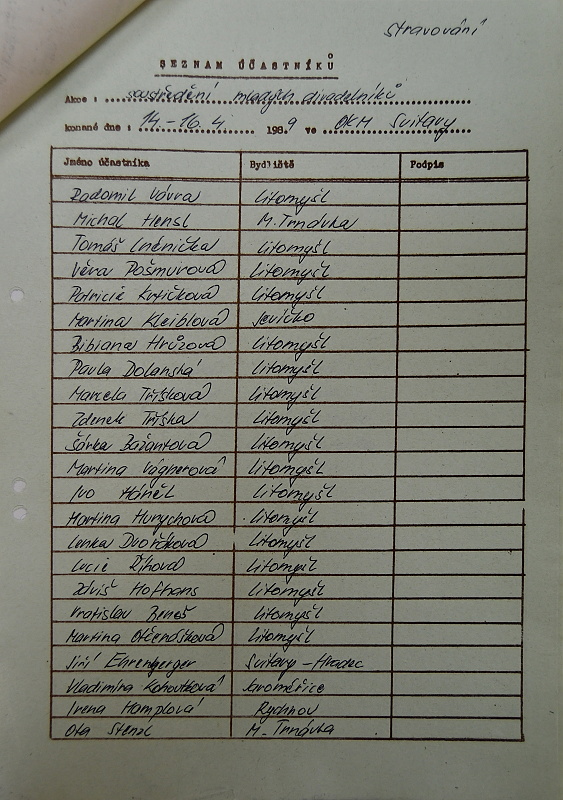 stravování
SEZNAM ÚČASTNÍKŮ
Akce : soustředění mladých divadelníků
konané dne : 14-16.4 1989 ve OKM Svitavy
Jméno účastníka Bydliště Podpis
Radomil Vávra Litomyšl
Michal Hensl M. Trnávka
Tomáš Lněnička Litomyšl
Věra Pošmurová Litomyšl
Patricie Kvíčková Litomyšl
Martina Kleiblová Jevíčko
Bibiana Hrůzová Litomyšl
Pavla Dolanská Litomyšl
Marcela Tříšková Litomyšl
Zdenek Tříska Litomyšl
Šárka Bažantová Litomyšl
Martina Vágnerová Litomyšl
Ivo Háněl Litomyšl
Martina Hurychová Litomyšl
Lenka Dvořáková Litomyšl
Lucie Říhová Litomyšl
Záviš Hofhans Litomyšl
Vratislav Beneš Litomyšl
Martina Otčenášková Litomyšl
Jiří Ehrenberger Svitavy - Hradec
Vladimíra Kohoutková Jaroměřice
Irena Hamplová Rychnov
Ota Stenzl M. Trnávka